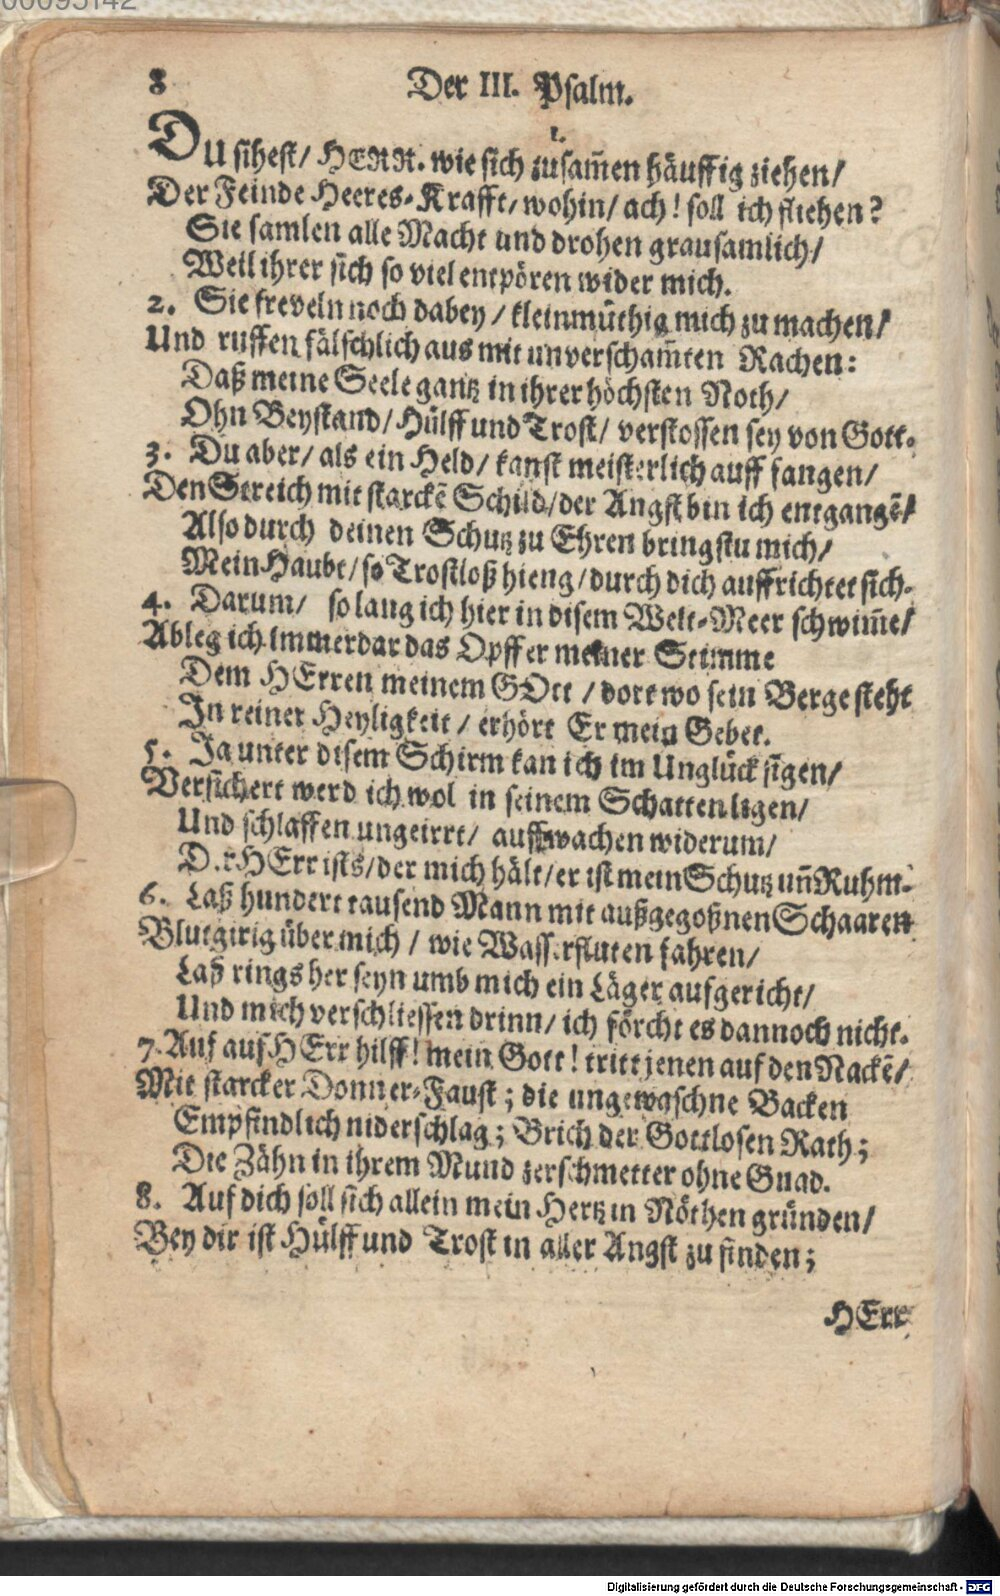 00095142
8 Der III. Psalm.
1.
Du sihest/ HERR. wie sich zusam̃en häuffig ziehen/
Der Feinde Heeres-Krafft/ wohin/ ach! soll ich fliehen?
Sie samlen alle Macht und drohen grausamlich/
Weil ihrer sich so viel entpören wider mich.
2. Sie freveln noch dabey / kleinmüthig mich zu machen/
Und ruffen fälschlich aus mit unverscham̃ten Rachen:
Daß meine Seele gantz in ihrer höchsten Noth/
Ohn Beystand/ Hülff und Trost/ verstossen sey von Gott.
3. Du aber/ als ein Held/ kanst meisterlich auff fangen/
Den Streich mit starckẽ Schild/ der Angst bin ich entgangẽ/
Also durch deinen Schutz zu Ehren bringstu mich/
Mein Haubt/ so Trostloß hieng/ durch dich auffrichtet sich.
4. Darum/ so lang ich hier in disem Welt-Meer schwim̃e/
Ableg ich immerdar das Opffer meiner Stimme
Dem HErren meinem GOtt / dort wo sein Berge steht
In reiner Heyligkeit / erhört Er mein Gebet.
5. Ja unter disem Schirm kan ich im Unglück sigen/
Versichert werd ich wol in seinem Schatten ligen/
Und schlaffen ungeirrt/ auffwachen widerum/
D.r HErr ists/ der mich hält/ er ist mein Schutz uñ Ruhm.
6. Laß hundert tausend Mann mit außgegoßnen Schaaren
Blutgirig über mich / wie Wasserfluten fahren/
Laß rings her seyn umb mich ein Läger aufgericht/
Und mich verschliessen drinn/ ich förcht es dannoch nicht.
7. Auf auf HErr hilff! mein Gott! tritt jenen auf den Nackẽ/
Mit starcker Donner-Faust; die ungewaschne Backen
Empfindlich niderschlag; Brich der Gottlosen Rath;
Die Zähn in ihrem Mund zerschmetter ohne Gnad.
8. Auf dich soll sich allein mein Hertz in Nöthen gründen/
Bey dir ist Hülff und Trost in aller Angst zu finden;
HErr
Digitalisierung gefördert durch die Deutsche Forschungsgemeinschaft - DFG